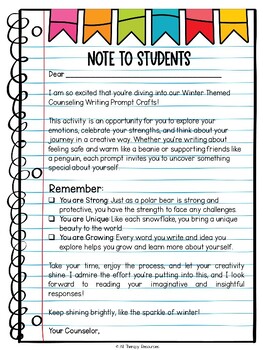 NOTE TO STUDENTS
Dear
I am so excited that you're diving into our Winter Themed
Counseling Writing Prompt Crafts!
This activity is an opportunity for you to explore your
emotions, celebrate your strengths, and think about your
journey in a creative way. Whether you're writing about
feeling safe and warm like a beanie or supporting friends like
a penguin, each prompt invites you to uncover something
special about yourself.
Remember:
You are Strong: Just as a polar bear is strong and
protective, you have the strength to face any challenges.
You are Unique: Like each snowflake, you bring a unique
beauty to the world.
You are Growing: Every word you write and idea you
explore helps you grow and learn more about yourself.
Take your time, enjoy the process, and let your creativity
shine. I admire the effort you're putting into this, and I
look forward to reading your imaginative and insightful
responses!
Keep shining brightly, like the sparkle of winter!
Your Counselor,
© All Therapy Resources